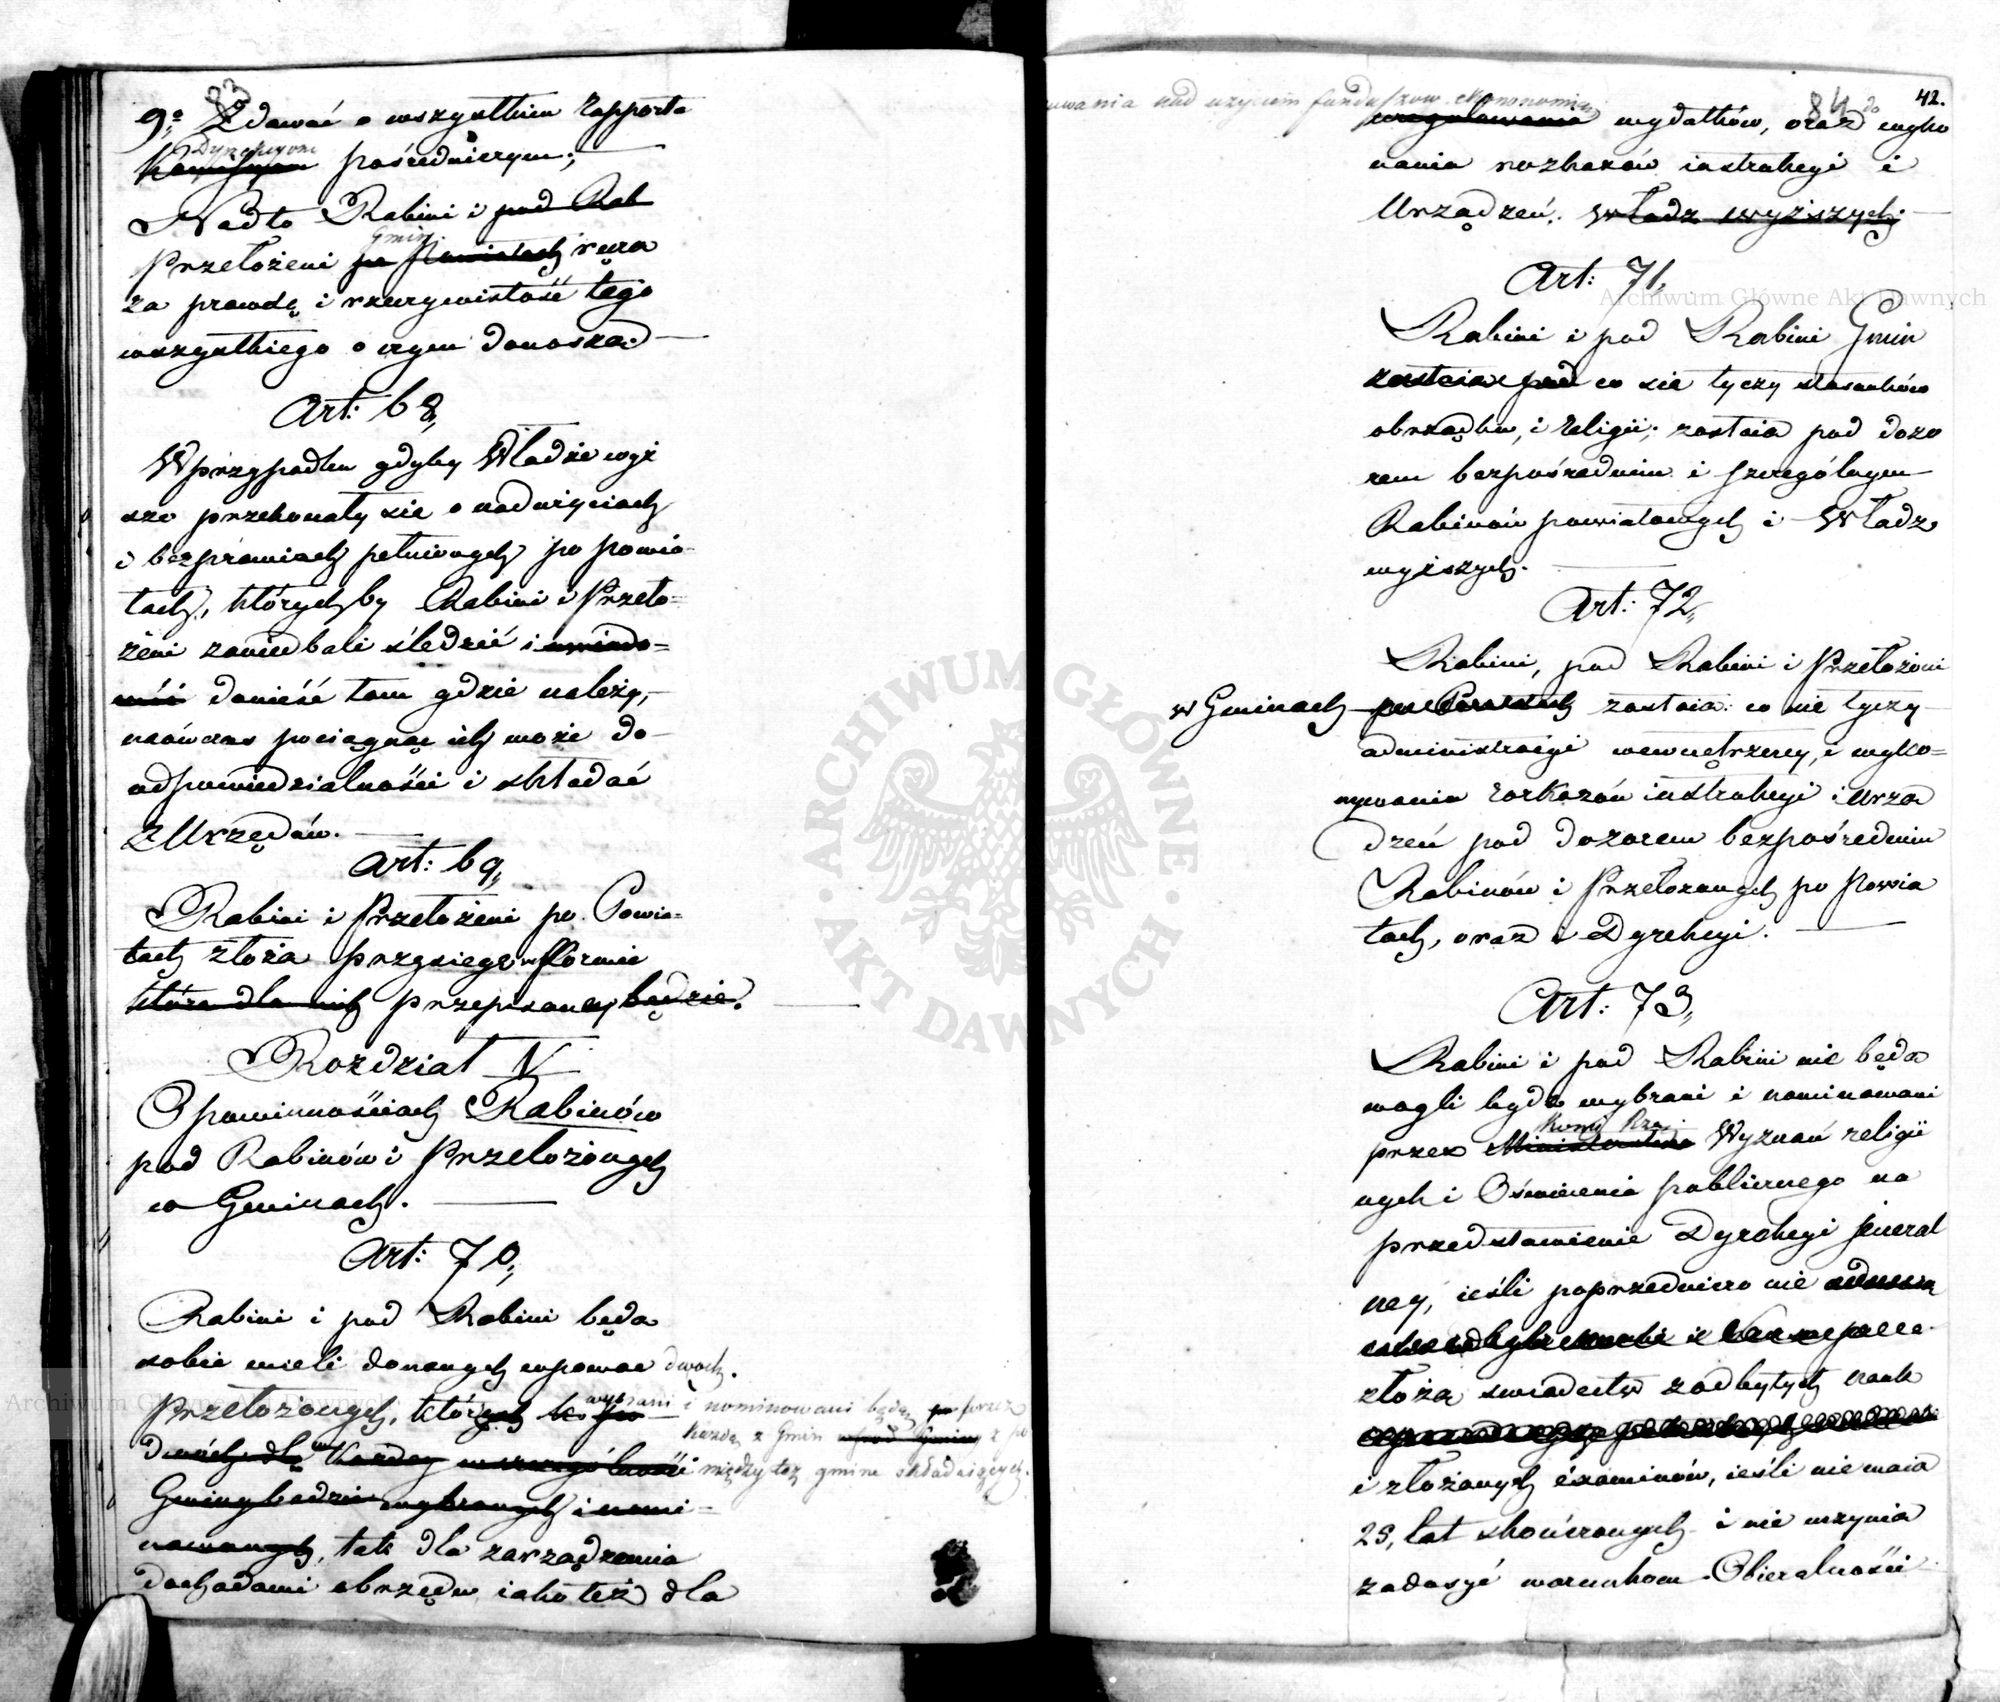 83
9o Zdawać o wszystkim rapporta
Dyrekcyom
pośredniczym;
Nadto Rabini i pod Rab
Gmin
Przełożeni po Powiatach ręczą
za prawdę i rzeczywistość tego
wszystkiego o czym donoszą.
Art: 68,
W przypadku gdyby Władze wyż
sze przekonały się o nadużyciach
i bezprawiach pełnionych po powia-
tach, którychby Rabini i Przeło=
żeni zaniedbali śledzić i uwiado=
mić donieść tam gdzie należy,
naówczas pociągnąć ich może do
odpowiedzialności i składać
z Urzędów.
Art: 69,
Rabini i Przełożeni po Powia=
tach złożą przysięgę w formie
która dla nich przepisaney będzie.
Rozdział IV
O powinnościach Rabinów
pod Rabinów i Przełożonych
w Gminach.
Art: 70,
Rabini i pod Rabini będą
sobie mieli donanych w pomoc dwóch
Przełożonych, którzy wybrani i nominowani będą przez
każdą z Gmin
dwóch dla każdey w szczególności między też gminę składaiących.
Gminy będzie wybranych i nomi=
nowanych, tak dla zarządzenia
dochodami obrzędu iako też dla
84
42.
uwania nad użyciem funduszow ekononomią
uregulowania wydatków, oraz do wyko
nania rozkazów instrukcyi i
Urządzeń. Władz wyższych.
Art: 71,
Rabini i pod Rabini Gmin
zostaią pod co się tyczy stosunków
obrządku, i religii; zostaią pod dozo
rem bezpośrednim i szczególnym
Rabinów powiatowych i Władz
wyższych.
Art: 72,
Rabini, pod Rabini i Przełożeni
w Gminach po Powiatach zostaią: co się tyczy
administracyi wewnętrzney, i wyko=
nywania rozkazów instrukcyi i Urzą
dzeń pod dozorem bezpośrednim
Rabinów i Przełożonych po Powia
tach, oraz Dyrekcyi.
Art: 73,
Rabini i pod Rabini nie będą
mogli bydź wybrani i nominowani
Komi Rzą:
przez Ministra Wyznań religii
nych i Oświecenia publicznego na
przedstawienie Dyrekcyi jeneral
ney, ieśli poprzedniczo nie
złożą świadectw z odbytych nauk
i złożonych éxaminów, ieśli nie maią
25, lat skończonych i nie uczynią
zadosyć warunkom Obieralności
Archiwum Główne Akt Dawnych
Archiwum Główne Akt Dawnych
ARCHIWUM GŁÓWNE · AKT DAWNYCH ·